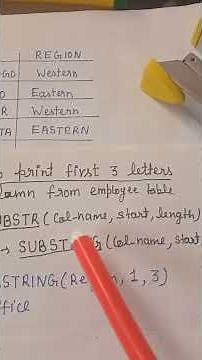 REGION
GO Western
O Eastern
R Western
TA EASTERN
print first 3 letters
from employee table
UBSTR (Col-name, start, length)
→ SUBST G (Col-name, start
STRING (Re n, 1, 3)
ffice